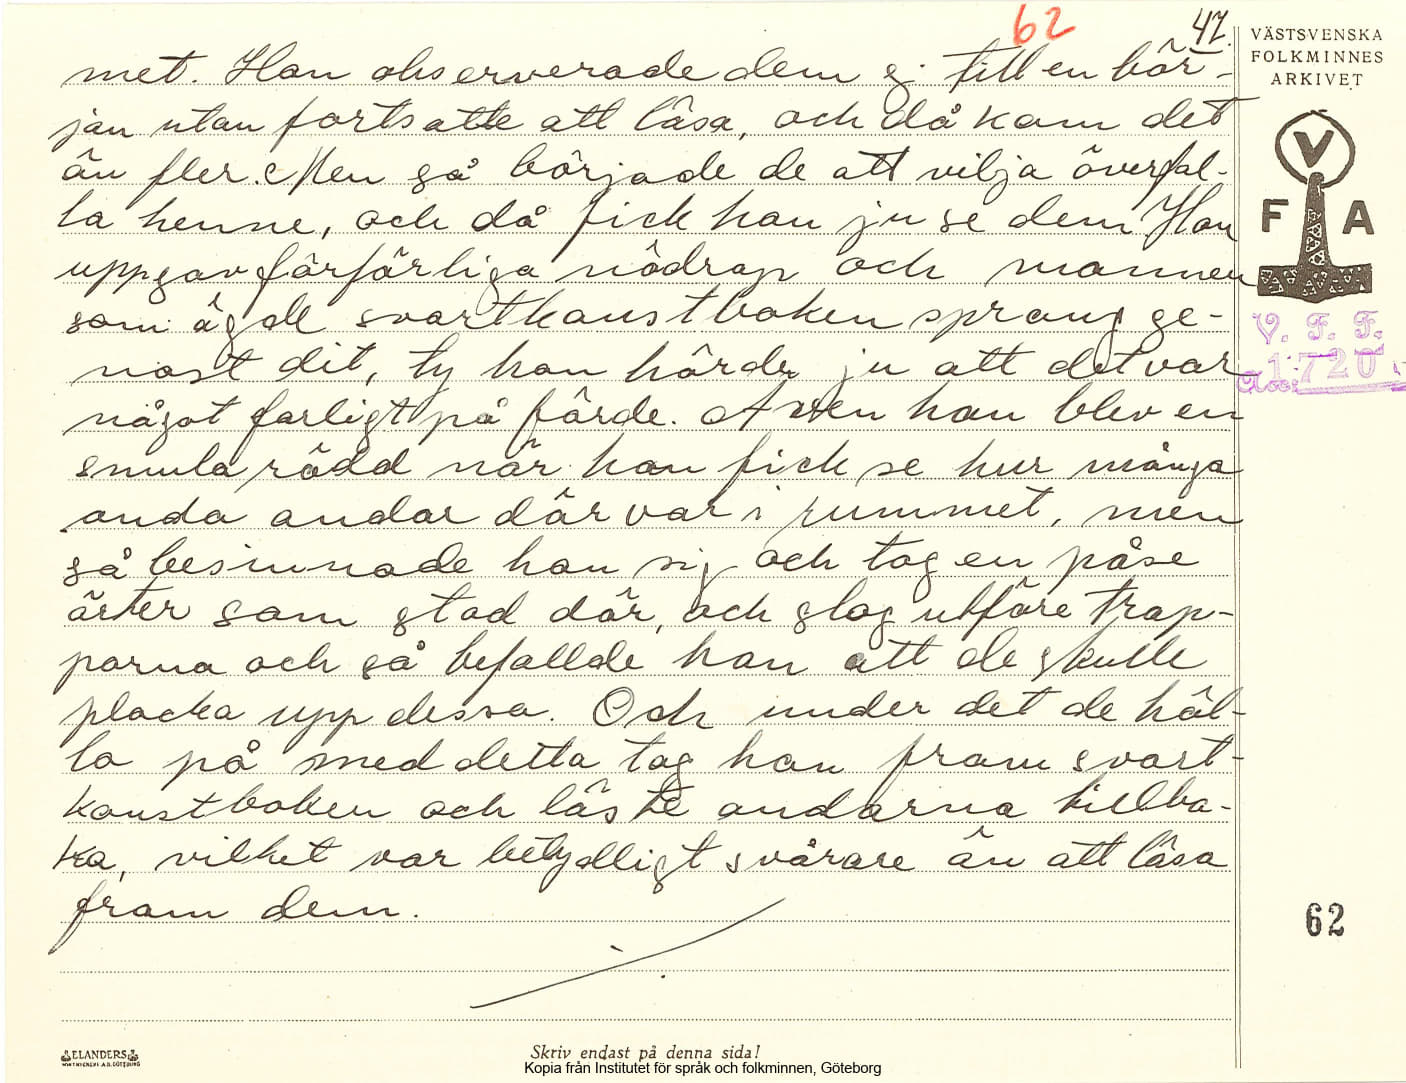 62
47.
VÄSTSVENSKA
FOLKMINNES
ARKIVET
V
F A
V. F. F.
Acc: 1720
met. Han observerade dem ej till en bör-
jan utan fortsatte att läsa, och då kom det
än fler. Men så började de att vilja överfal-
la henne, och då fick han ju se dem Han
uppgav förfärliga nödrop och mannen
som ägde svartkonstboken sprang ge-
nast dit, ty han hörde ju att det var
något farligt på färde. Även han blev en
smula rädd när han fick se hur många
onda andar där var i rummet, men
så besinnade han sig och tog en påse
ärter som stod där, och slog utföre trap-
porna och så befallde han att de skulle
plocka upp dessa. Och under det de höl-
lo på med detta tog han fram svart-
konstboken och läste andarna tillba-
ka, vilket var betydligt svårare än att läsa
fram dem.
62
ELANDERS
Skriv endast på denna sida!
Kopia från Institutet för språk och folkminnen, Göteborg